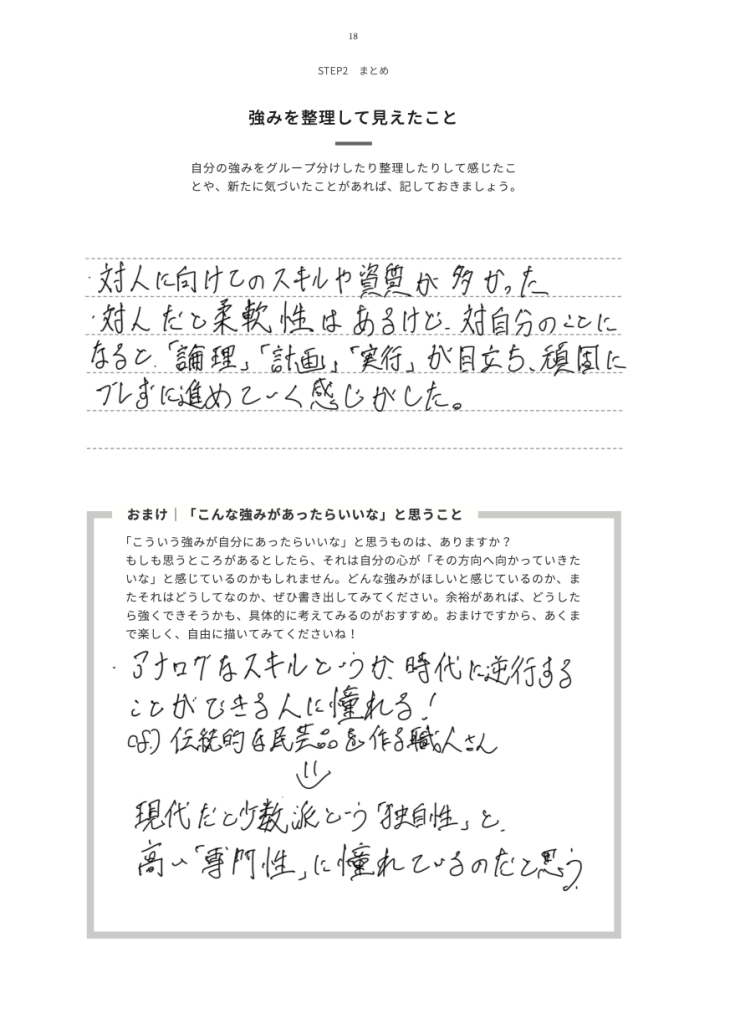 18
STEP2　まとめ
強みを整理して見えたこと
自分の強みをグループ分けしたり整理したりして感じたこ
とや、新たに気づいたことがあれば、記しておきましょう。
・対人に向けてのスキルや資質が多かった
・対人だと柔軟性はあるけど、対自分のことに
なると、「論理」「計画」「実行」が目立ち、頑固に
ブレずに進めていく感じがした。
おまけ｜「こんな強みがあったらいいな」と思うこと
「こういう強みが自分にあったらいいな」と思うものは、ありますか？
もしも思うところがあるとしたら、それは自分の心が「その方向へ向かっていきた
いな」と感じているのかもしれません。どんな強みがほしいと感じているのか、ま
たそれはどうしてなのか、ぜひ書き出してみてください。余裕があれば、どうした
ら強くできそうかも、具体的に考えてみるのがおすすめ。おまけですから、あくま
で楽しく、自由に描いてみてくださいね！
・アナログなスキルというか、時代に逆行する
ことができる人に憧れる！
ex) 伝統的な民芸品を作る職人さん
現代だと少数派という「独自性」と、
高い「専門性」に憧れているのだと思う。